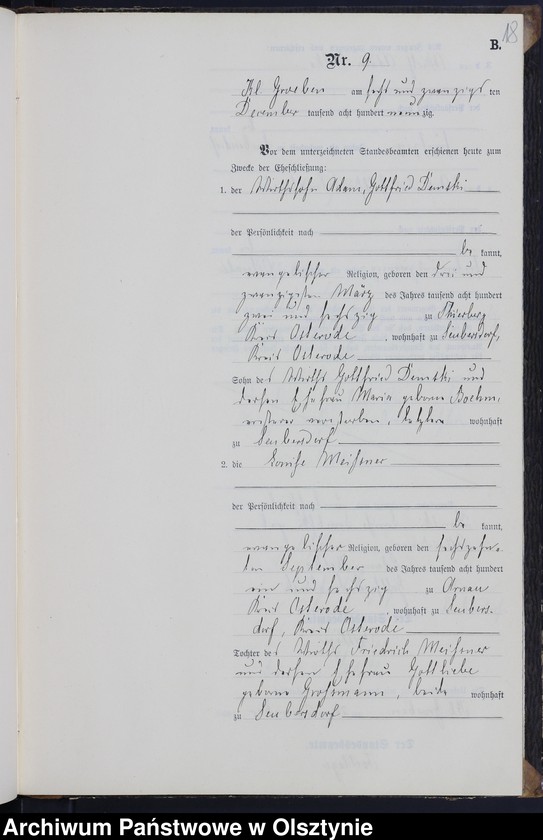 18
B.
Nr. 9.
Kl. Groeben am sechs und zwanzigsten
Dezember tausend acht hundert neunzig.
Vor dem unterzeichneten Standesbeamten erschienen heute zum
Zwecke der Eheschließung:
1. der Wirthssohn Adam, Gottfried Demski
der Persönlichkeit nach
be kannt,
evangelischer Religion, geboren den drei und
zwanzigsten März des Jahres tausend acht hundert
zwei und sechszig zu Thierberg
Kreis Osterode, wohnhaft zu Seubersdorf,
Kreis Osterode
Sohn des Wirths Gottfried Demski und
dessen Ehefrau Marie geborne Boehm,
ersterer verstorben, letztere wohnhaft
zu Seubersdorf
2. die Louise Meißner
der Persönlichkeit nach
be kannt,
evangelischer Religion, geboren den sechszehn-
ten September des Jahres tausend acht hundert
ein und sechszig zu Arnau
Kreis Osterode, wohnhaft zu Seubers-
dorf, Kreis Osterode
Tochter des Wirths Friedrich Meißner
und dessen Ehefrau Gottliebe
geborne Großmann, beide wohnhaft
zu Seubersdorf
Archiwum Państwowe w Olsztynie